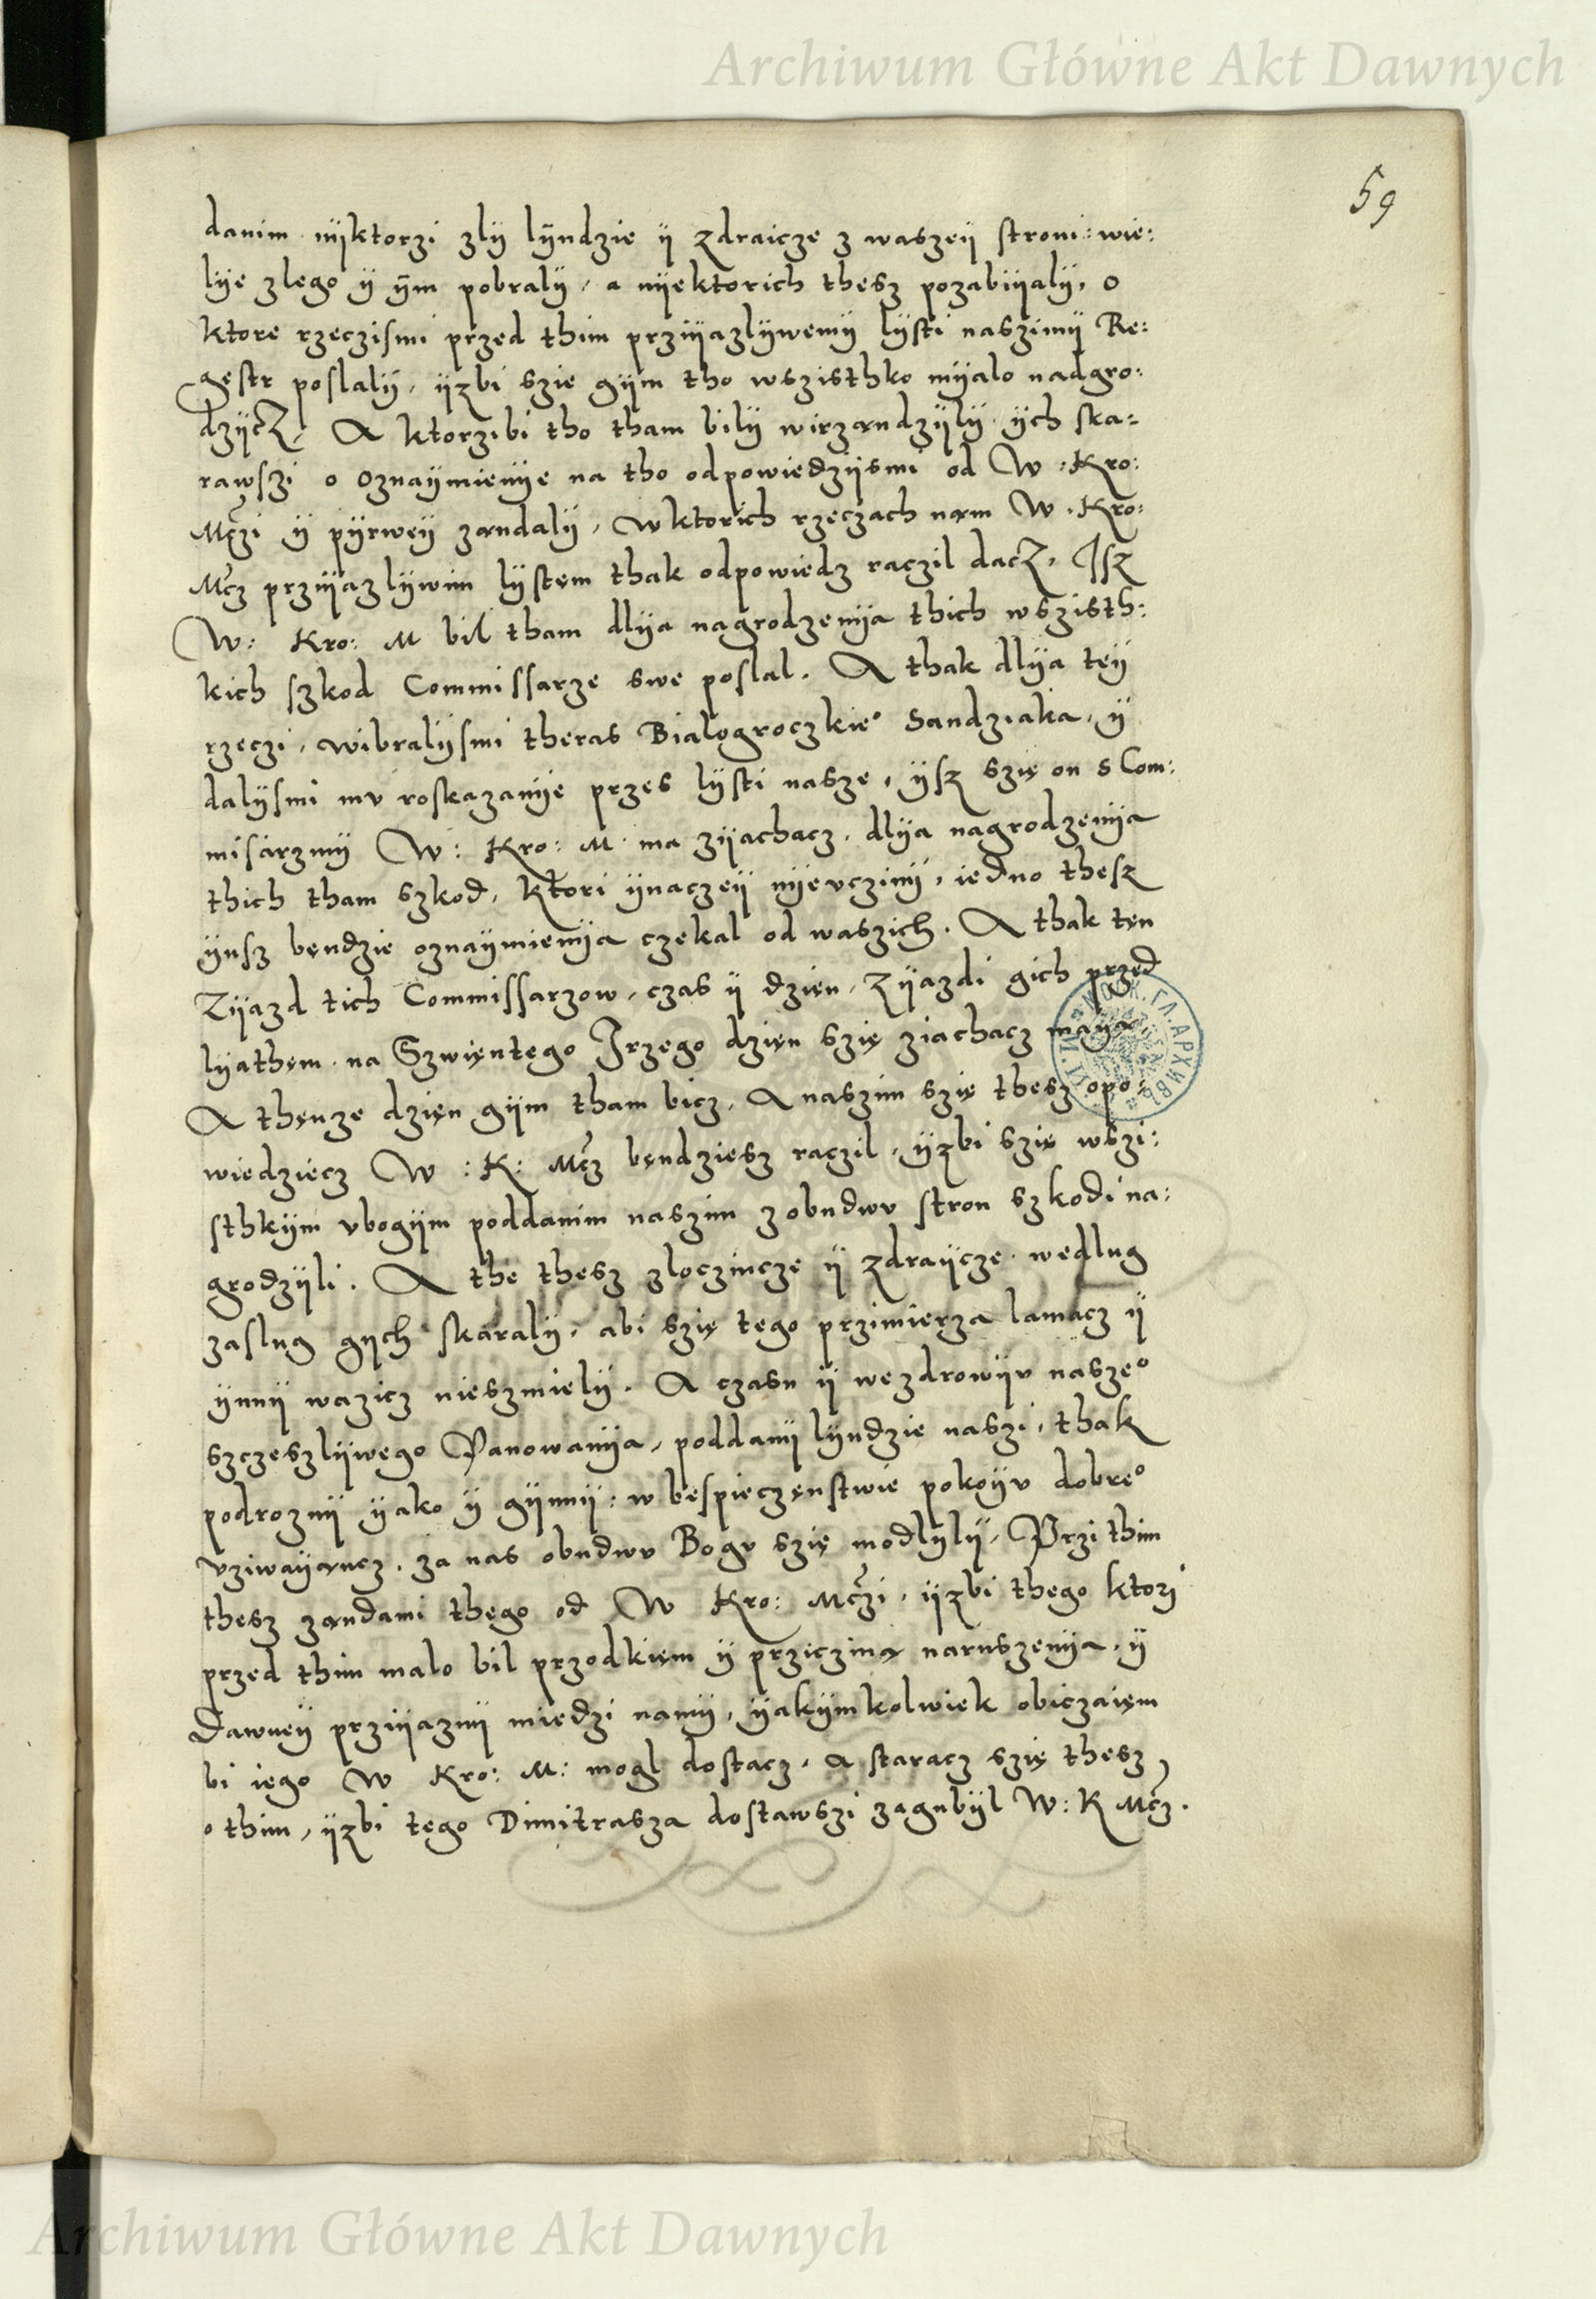 Archiwum Główne Akt Dawnych
59
danim nyktorzi zly lyndzie ÿ zdraicze z waszeÿ stroni: wie:
lÿe zlego ÿ ÿm pobralÿ, a nÿektorich thesz pozabÿalÿ, o
ktore rzeczismi przed thim przÿazlÿwemÿ lÿsti naszimÿ Re:
gestr poslalÿ, ÿzbi szie gÿm tho wszisthko mÿalo nadgro:
dzÿcz, A ktorzibi tho tham bilÿ wirzandzÿlÿ ÿch ska:
rawszi o oznaÿmienÿe na tho odpowiedzÿsmi od W: Kro:
Mczi ÿ pÿrweÿ zandalÿ, w ktorich rzeczach nam W. Kro:
Mcz przÿazlÿwim lÿstem thak odpowiedz raczil dacz, Jsz
W: Kro: M bil tham dlÿa nagrodzenÿa thich wszisth:
kich szkod Commissarze swe poslal. A thak dlÿa teÿ
rzeczi, wibralÿsmi theras Bialogroczkie° Sandziaka, ÿ
dalÿsmi mv roskazanÿe przes lÿsti nasze, ÿsz szię on s Com:
misarzmÿ W: Kro: M ma zÿachacz, dlÿa nagrodzenÿa
thich tham szkod, ktori ÿnaczeÿ nÿevczinÿ, iedno thesz
ÿnsz bęndzie oznaÿmienÿa czekal od waszich. A thak tęn
Zÿazd tich Commissarzow, czas ÿ dzięn, Zÿazdi gich przed
lÿathem na Szwięntego Jrzego dzięn szię ziachacz maÿa
A thęnze dzięn gÿm tham bicz, A naszim szię thesz opo:
wiedziecz W: K: Mcz bęndziesz raczil, ÿzbi szię wszi:
sthkÿm vbogÿm poddanim naszim z obudwu stron szkodi na:
grodzÿli. A the thesz zloczincze ÿ zdraÿcze wedlug
zaslug gÿch skaralÿ, abi szię tego przimierza lamacz ÿ
ÿnnÿ wazicz nieszmielÿ. A czasu ÿ we zdrowÿv nasze°
szczeszlÿwego Panowanÿa, poddanÿ lÿndzie naszi, thak
podroznÿ ÿako ÿ gÿnnÿ: w bespieczęnstwie pokoÿv dobre°
vziwaÿancz, za nas obudwv Bogv szię modlÿlÿ, Przi thim
thesz zandami thego od W Kro: Mczi, ÿzbi thego ktori
przed thim malo bil przodkięm ÿ przicziną naruszenÿa, ÿ
Dawneÿ przÿaznÿ miedzi namÿ, ÿakÿmkolwiek obiczaięm
bi iego W Kro: M: mogl dostacz, A staracz szię thesz
o thim, ÿzbi tego Dimitrasza dostawszi zagubÿl W: K Mcz.
Archiwum Główne Akt Dawnych